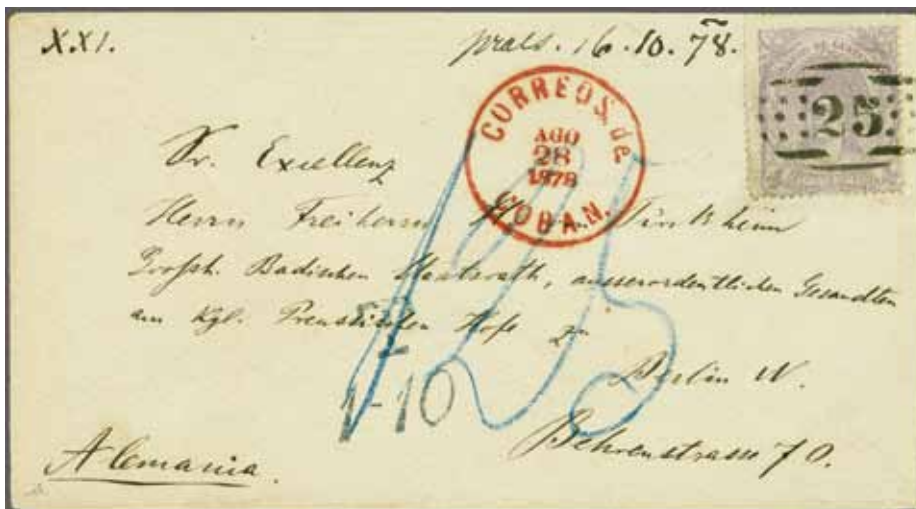 XXI.
praes. 16.10.78.
25
CORREOS. de.
AGO
28
1878
COBAN.
Sr. Excellenz
Herrn Freiherrn Türckheim
Grossh. Badischen Staatsrath, ausserordentlichen Gesandten
am Kgl. Preussischen Hofe zu
Berlin W.
Behrenstrasse 70.
T
1-10
Alemania.